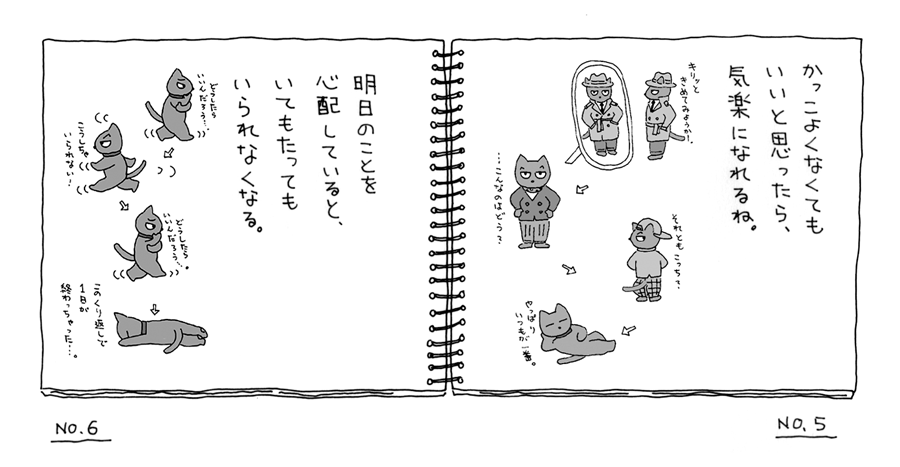 かっこよくなくても
いいと思ったら、
気楽になれるね。
キリッと
きめてみようか!。
…こんなのはどう?
それとも こっち?
やっぱり
いつもが一番。
NO.5
明日のことを
心配していると、
いてもたっても
いられなくなる。
どうしたら
いいんだろう…。
こうしちゃ
いられない!
どうしたら
いいんだろう…。
このくり返しで
1日が
終わっちゃった…。
NO.6